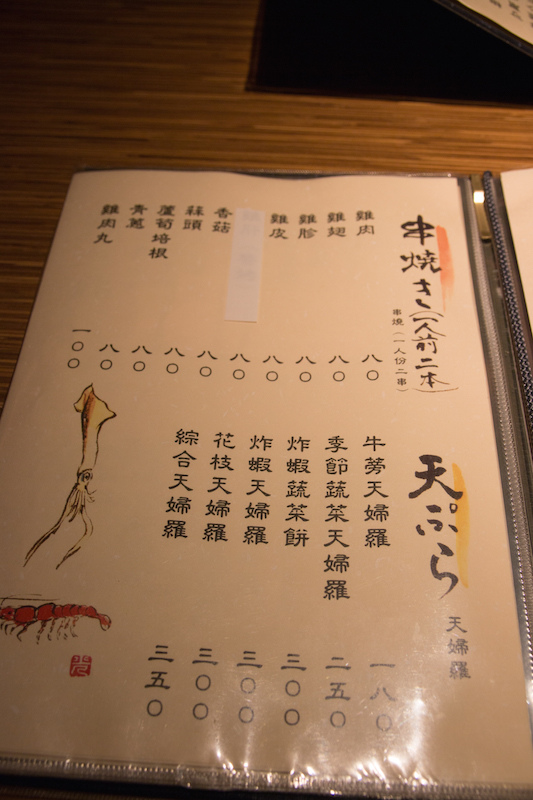 串焼き(一人前二本)
串燒(一人份二串)
雞肉 八〇
雞翅 八〇
雞胗 八〇
雞皮 八〇
八〇
香菇 八〇
蒜頭 八〇
蘆筍培根 八〇
青蔥 八〇
雞肉丸 一〇〇
天ぷら
天婦羅
牛蒡天婦羅 一八〇
季節蔬菜天婦羅 二五〇
炸蝦蔬菜餅 三〇〇
炸蝦天婦羅 三〇〇
花枝天婦羅 三〇〇
綜合天婦羅 三五〇